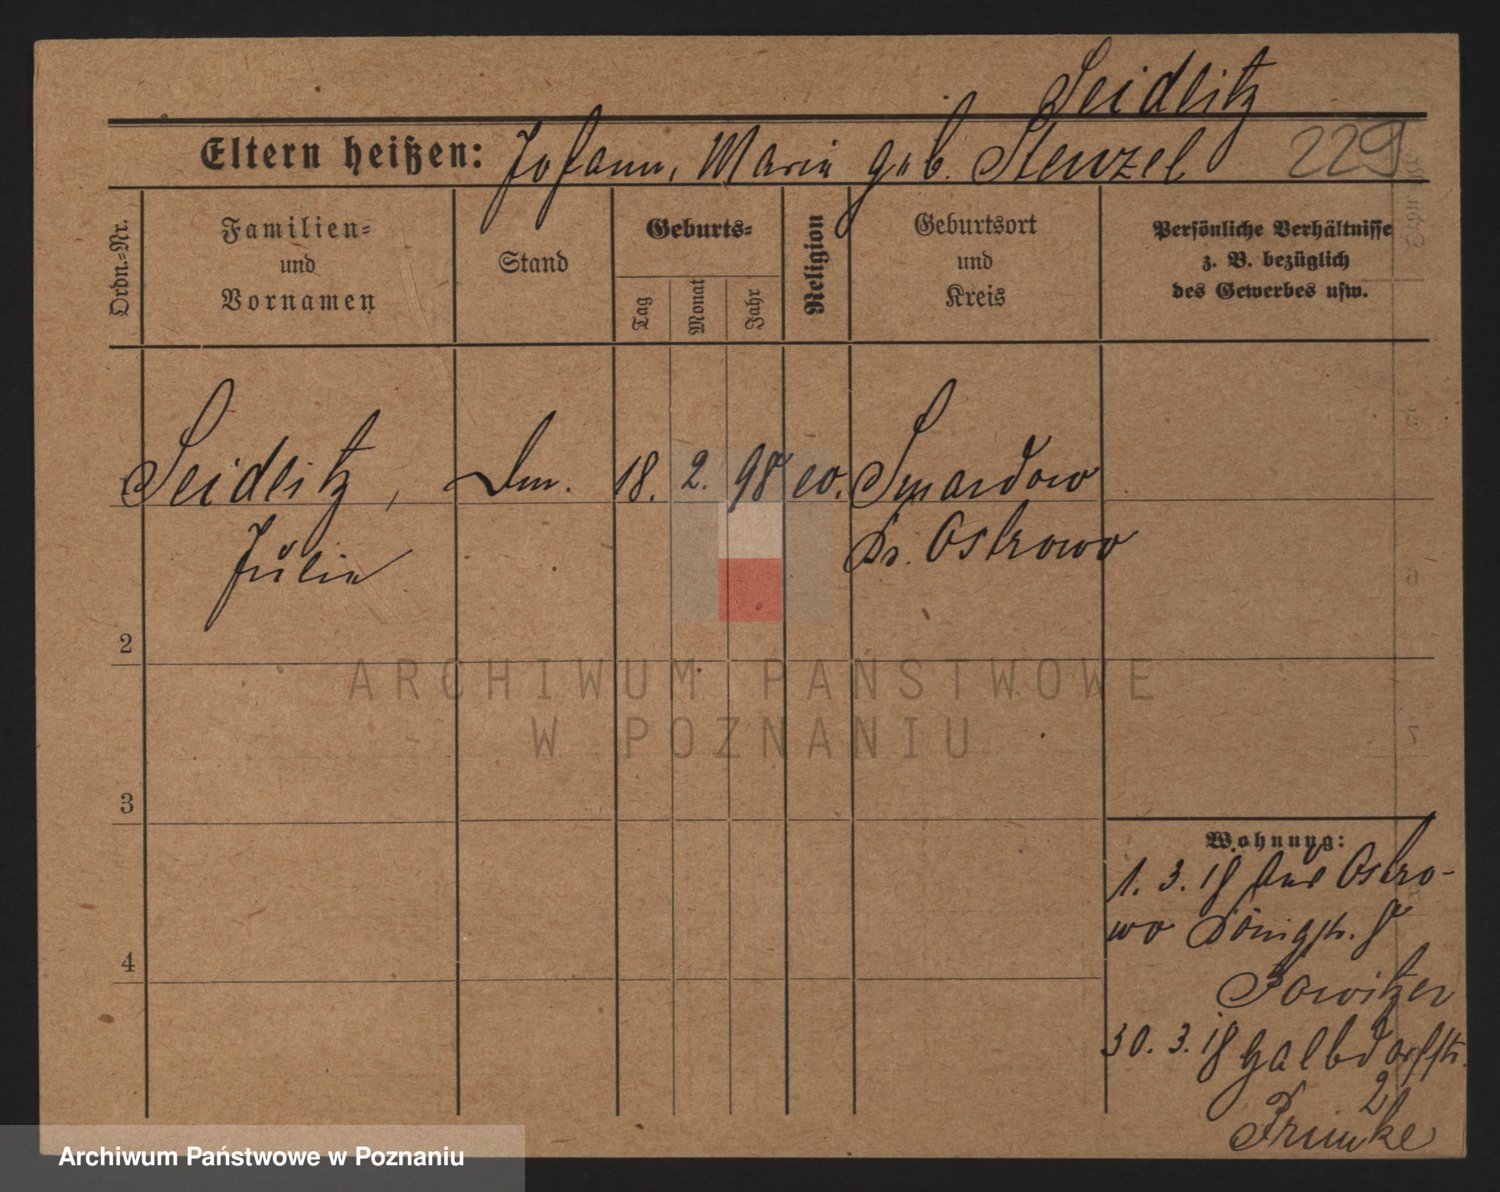 Seidlitz
Eltern heißen: Johann, Maria geb. Stenzel
229
Ordn.-Nr.
Familien-
und
Vornamen
Stand
Geburts-
Tag
Monat
Jahr
Religion
Geburtsort
und
Kreis
Persönliche Verhältnisse
z. B. bezüglich
des Gewerbes usw.
Seidlitz, 18. 2. 98 ev. Smardow
Julie Kr. Ostrowo
2
3
4
ARCHIWUM PAŃSTWOWE
W POZNANIU
Wohnung:
1. 3. 18 aus Ostro-
wo Königstr. 8
30. 3. 18 Halbdorfstr.
2
Archiwum Państwowe w Poznaniu